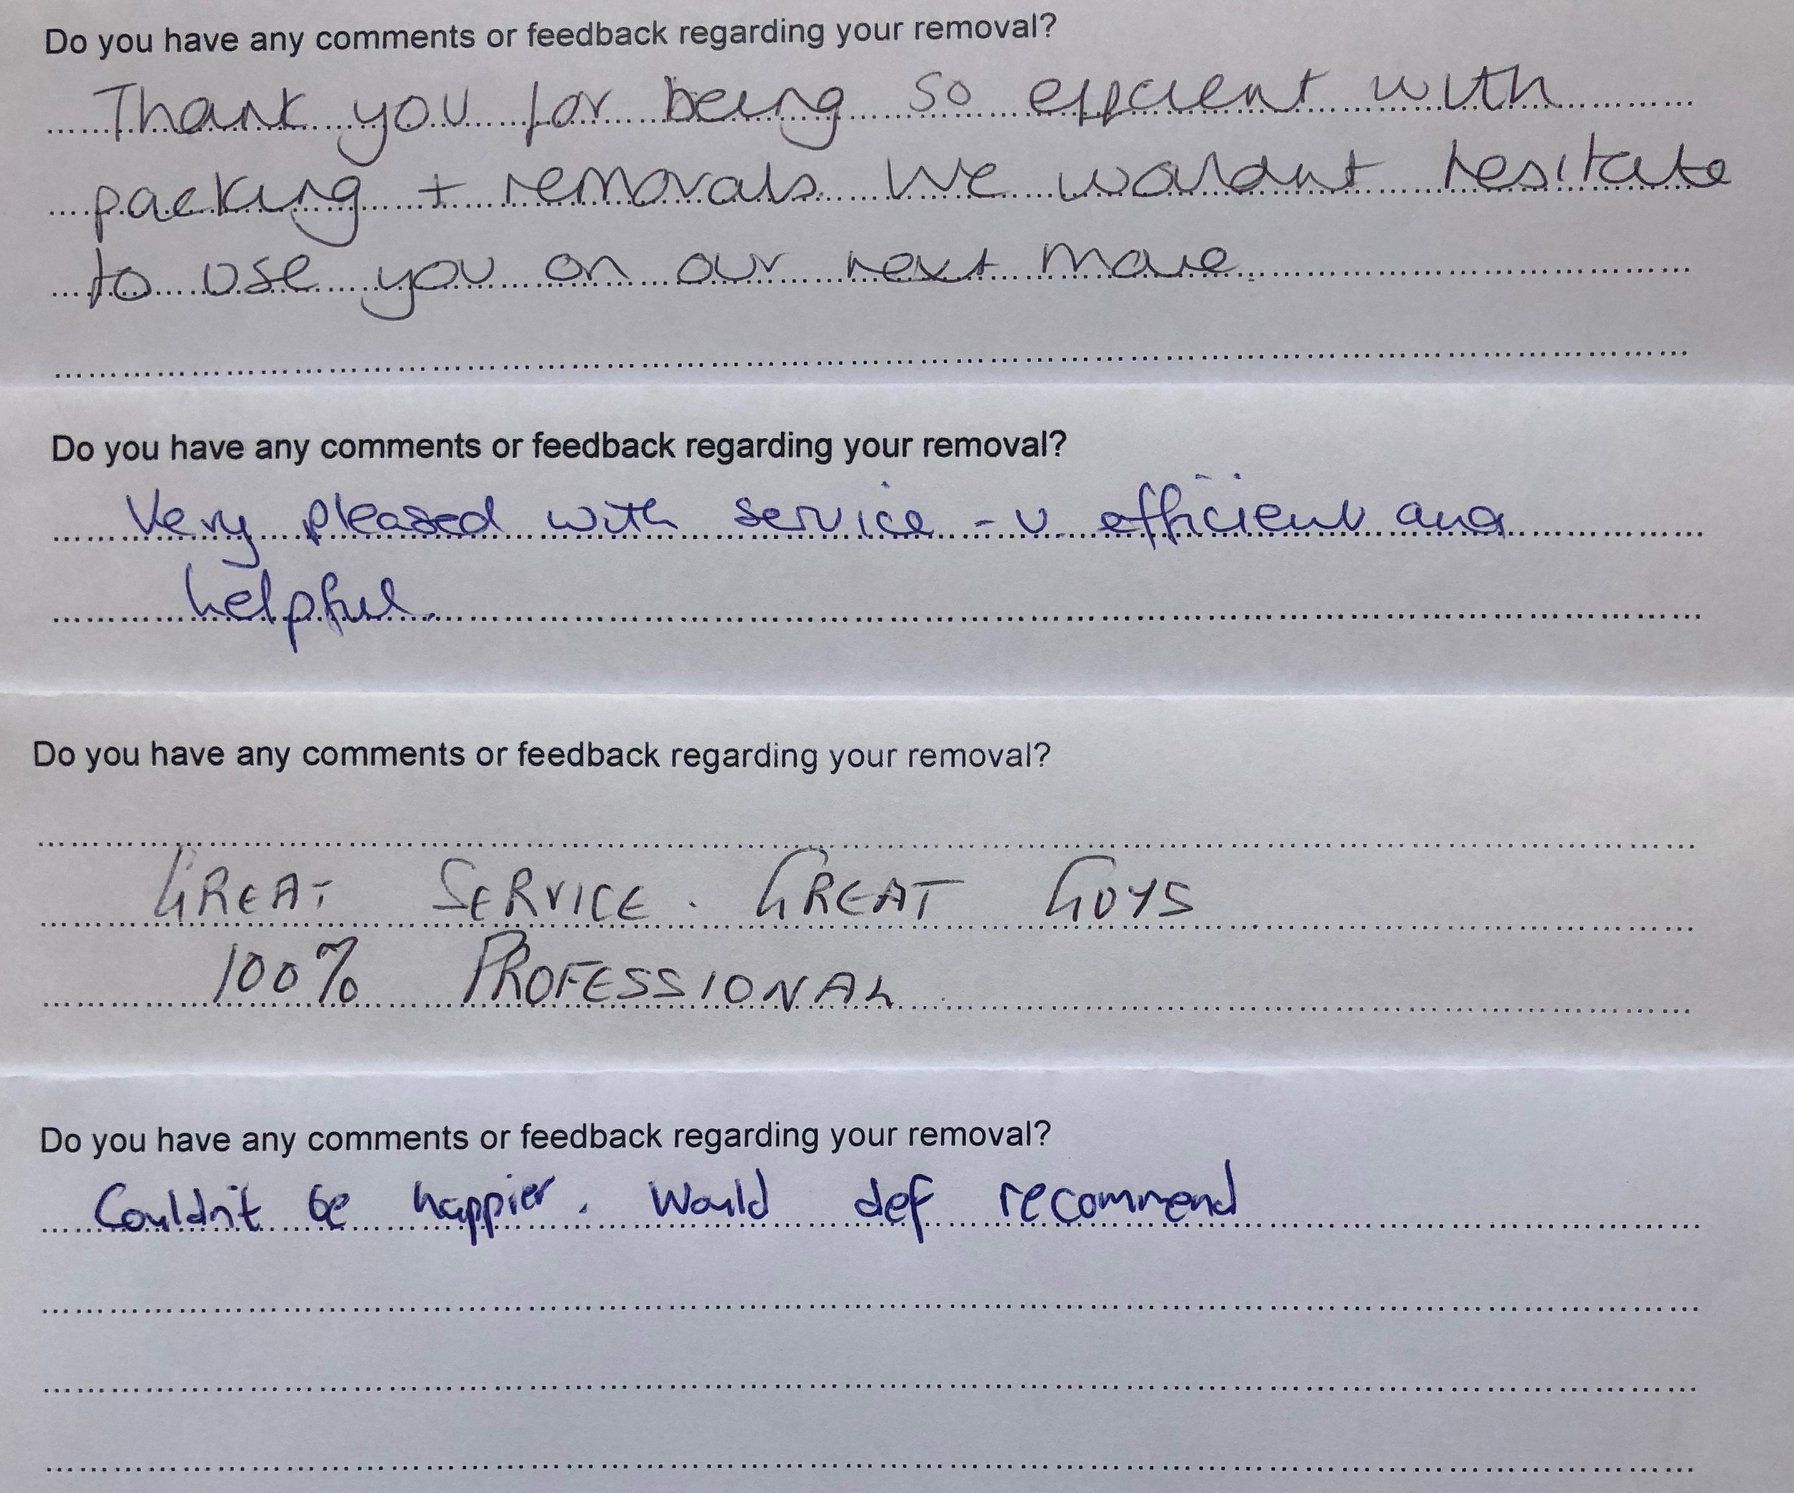 Do you have any comments or feedback regarding your removal?
Thank you for being so efficient with
packing + removals. We wouldnt hesitate
to use you on our next move.
Do you have any comments or feedback regarding your removal?
Very pleased with service - v. efficient and
helpful.
Do you have any comments or feedback regarding your removal?
GREAT SERVICE. GREAT GUYS
100% PROFESSIONAL
Do you have any comments or feedback regarding your removal?
Couldn't be happier. Would def recommend